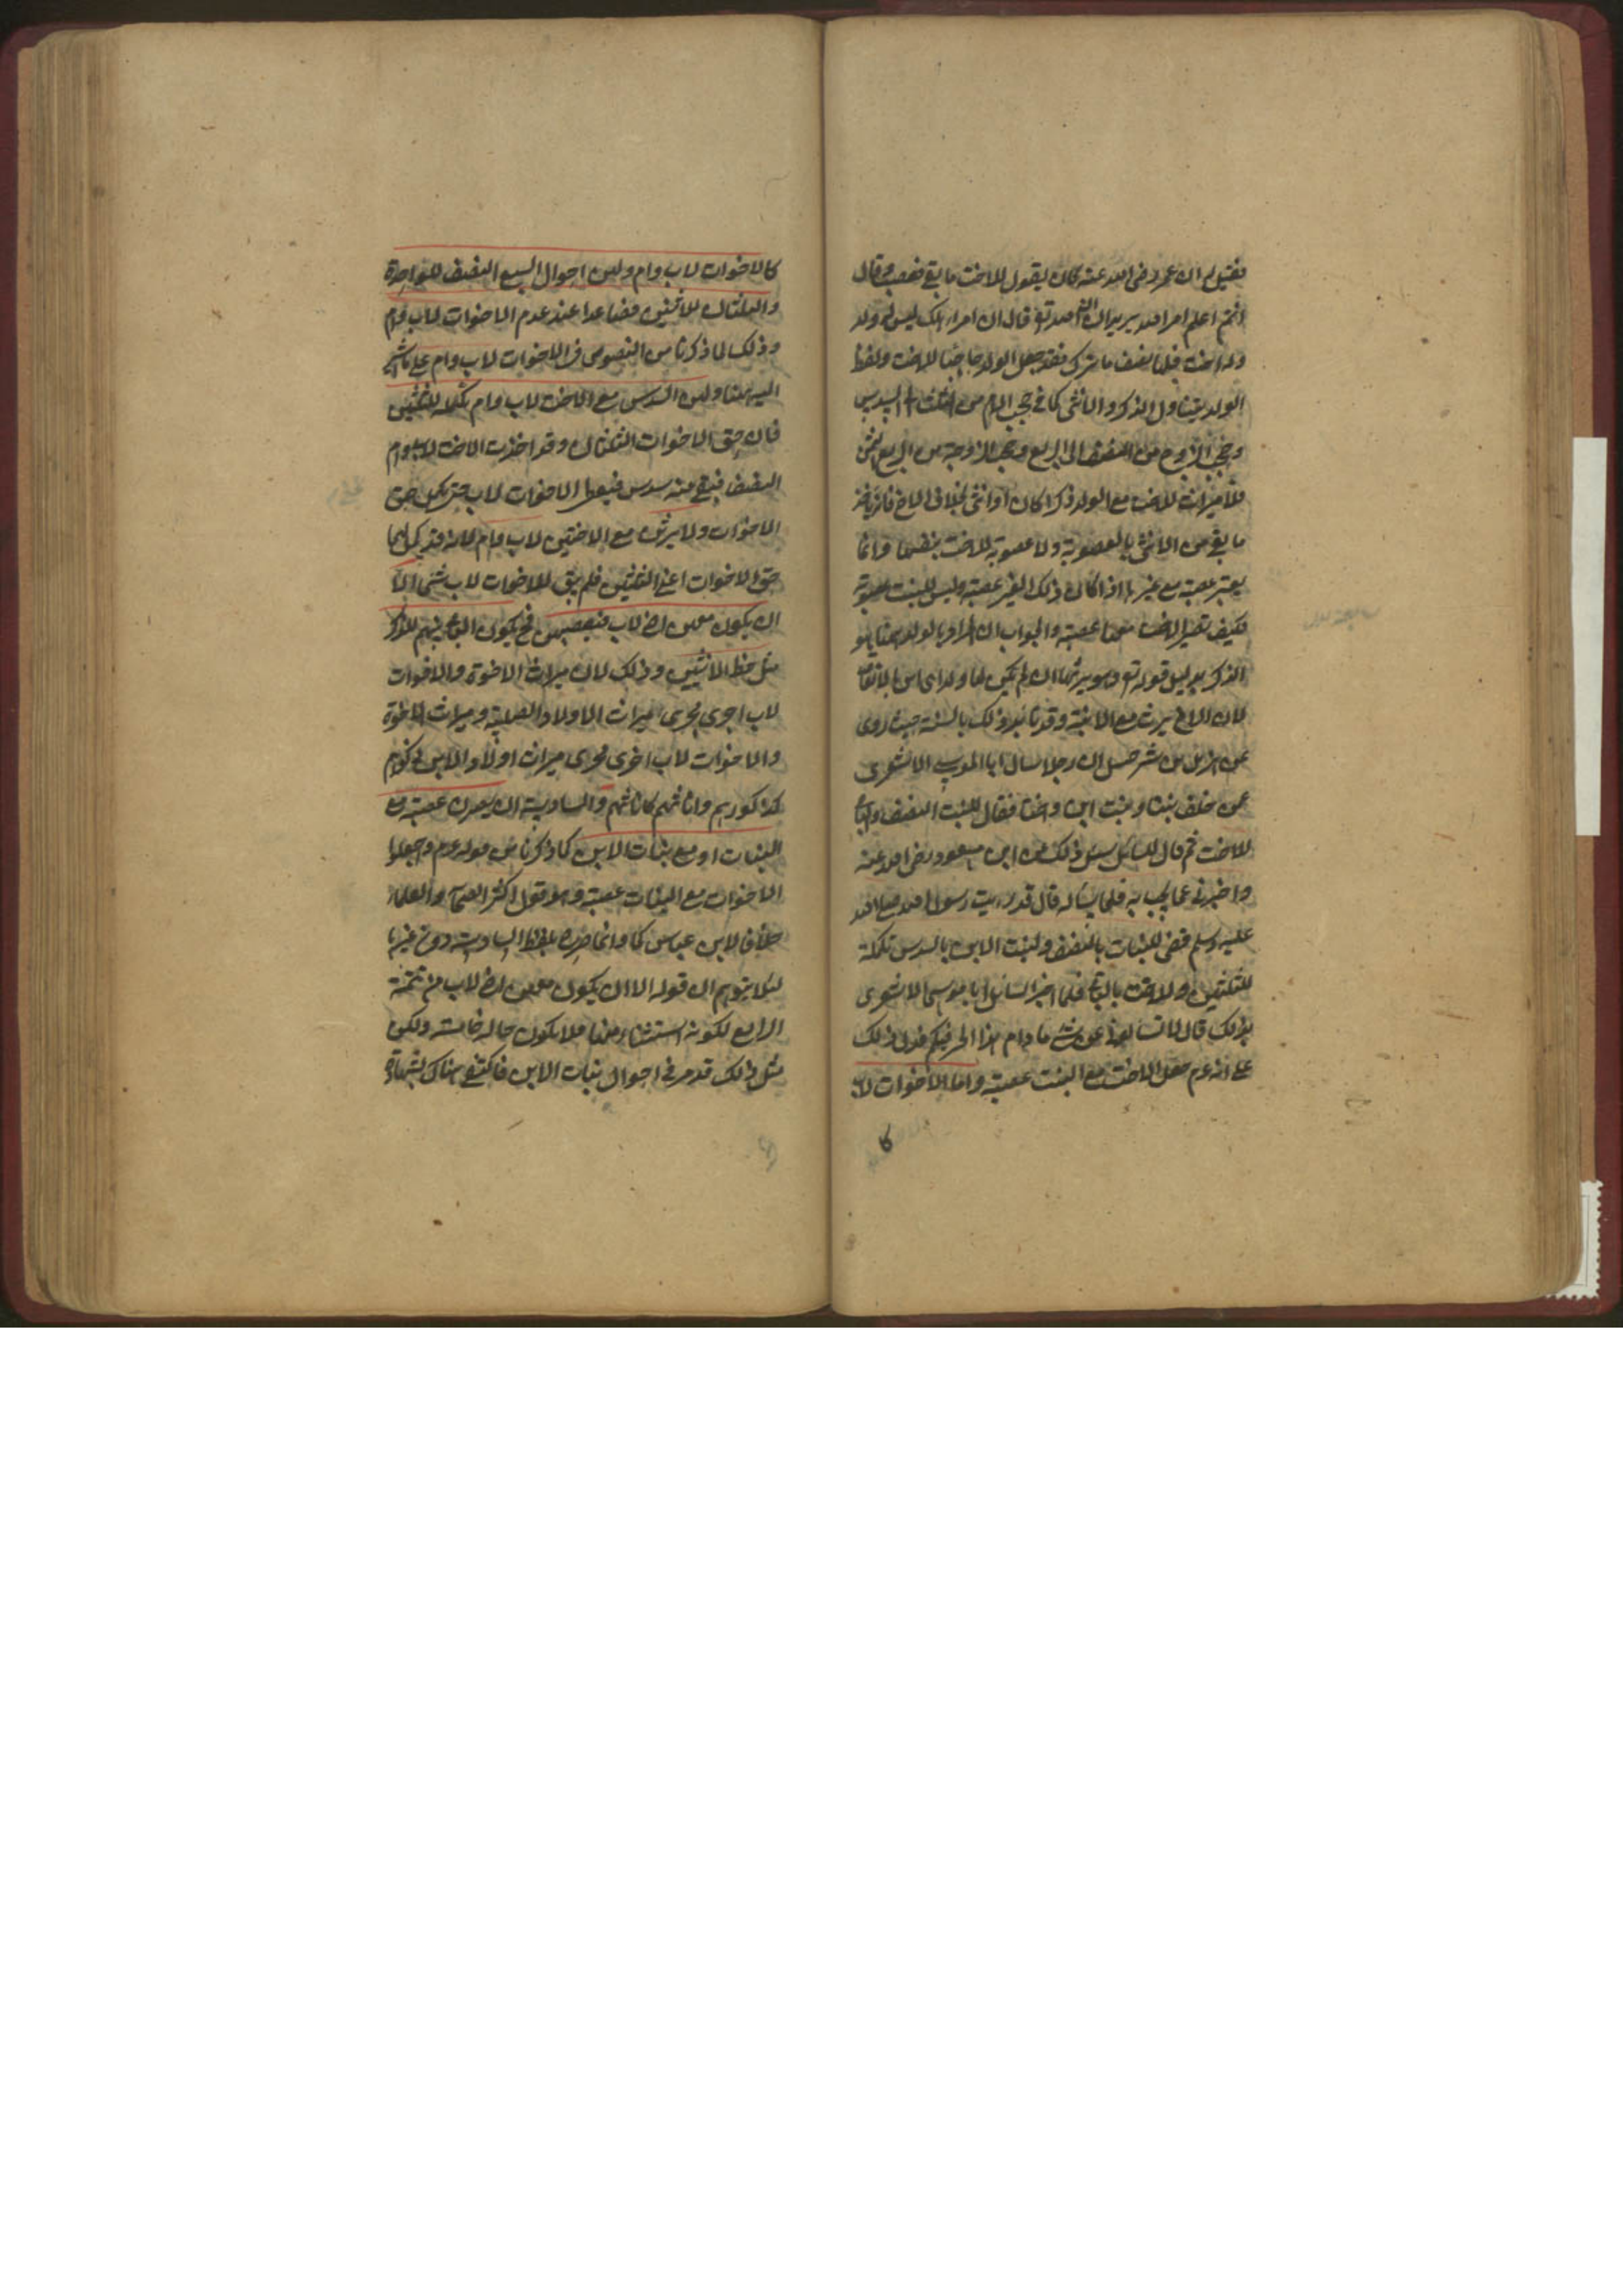 فقيل له ان عمر رضى الله عنه كان يقول للاخت ما بقى فغضب وقال
انتم اعلم ام الله يريد ان الله تع قال ان امرء هلك ليس له ولد
وله اخت فلها نصف ما ترك فقد جعل الولد حاجبا للاخت ولفظ
الولد يتناول الذكر والانثى كما فى حجب الام من الثلث الى السدس
وحجب الزوج من النصف الى الربع وحجب الزوجة من الربع الى الثمن
فلا ميراث للاخت مع الولد ذكرا كان او انثى بخلاف الاخ فانه ياخذ
ما بقى من الانثى بالعصوبة ولا عصوبة للاخت بنفسها وانما
يعتبر عصبة مع غيرها اذا كان ذلك الغير عصبة وليس للبنت عصوبة
فكيف تصير الاخت معها عصبة والجواب ان المراد بالولد ههنا هو
الذكر بدليل قوله تع وهو يرثها ان لم يكن لها ولد اى ابن بالاتفاق
لان الاخ يرث مع الابنة وقد تأيد ذلك بالسنة حيث روى
عن هزيل بن شرحبيل ان رجلا سال ابا الموسى الاشعرى
عمن خلف بنتا وبنت ابن واختا فقال للبنت النصف والباقى
للاخت ثم قال للسائل سئل ذلك عن ابن مسعود رضى الله عنه
واخبرنى عما يجيب به فلما سأله قال قد رءيت رسول الله صلى الله
عليه وسلم قضى للبنات بالنصف ولبنت الابن بالسدس تكملة
للثلثين وللاخت بالباقى فلما اخبر السائل ابا موسى الاشعرى
بذلك قال لا تسألونى عن شئ ما دام هذا الحبر فيكم فدل ذلك
على انه عم جعل الاخت مع البنت عصبة واما الاخوات لاب
كا
كالاخوات لاب وام ولهن احوال السبع النصف للواحدة
والثلثان للاثنين فصاعدا عند عدم الاخوات لاب وام
وذلك لما ذكرنا من النصوص فى الاخوات لاب وام على ما اشير
اليه هنا ولهن السدس مع الاخت لاب وام تكملة للثلثين
فان حق الاخوات الثلثان وقد اخذت الاخت لاب وام
النصف فبقى منه سدس فيعطى الاخوات لاب حتى يكمل حق
الاخوات ولا يرثن مع الاختين لاب وام لانه قد كمل لهما
حق الاخوات اعنى الثلثين فلم يبق للاخوات لاب شئ الا
ان يكون معهن اخ لاب فيعصبهن فح يكون الباقى بينهم للذكر
مثل حظ الانثيين وذلك لان ميراث الاخوة والاخوات
لاب اجرى مجرى ميراث الاولاد الصلبية وميراث الاخوة
والاخوات لاب اخرى مجرى ميراث اولاد الابن ذكورهم
كذكورهم واناثهم كاناثهم والسادسة ان يصرن عصبة مع
البنات او مع بنات الابن كما ذكرنا من قوله عم واجعلوا
الاخوات مع البنات عصبة وهو قول اكثر الصحابة والعلماء
خلافا لابن عباس كما وانما صرح بلفظ السادسة دون غيرها
لئلا يتوهم ان قوله الا ان يكون معهن اخ لاب من تتمة
الرابع لكونه استثناء منها فلا يكون حالة خامسة ولكن
مثل ذلك قد مر فى احوال بنات الابن فاكتفى هناك بشهادة